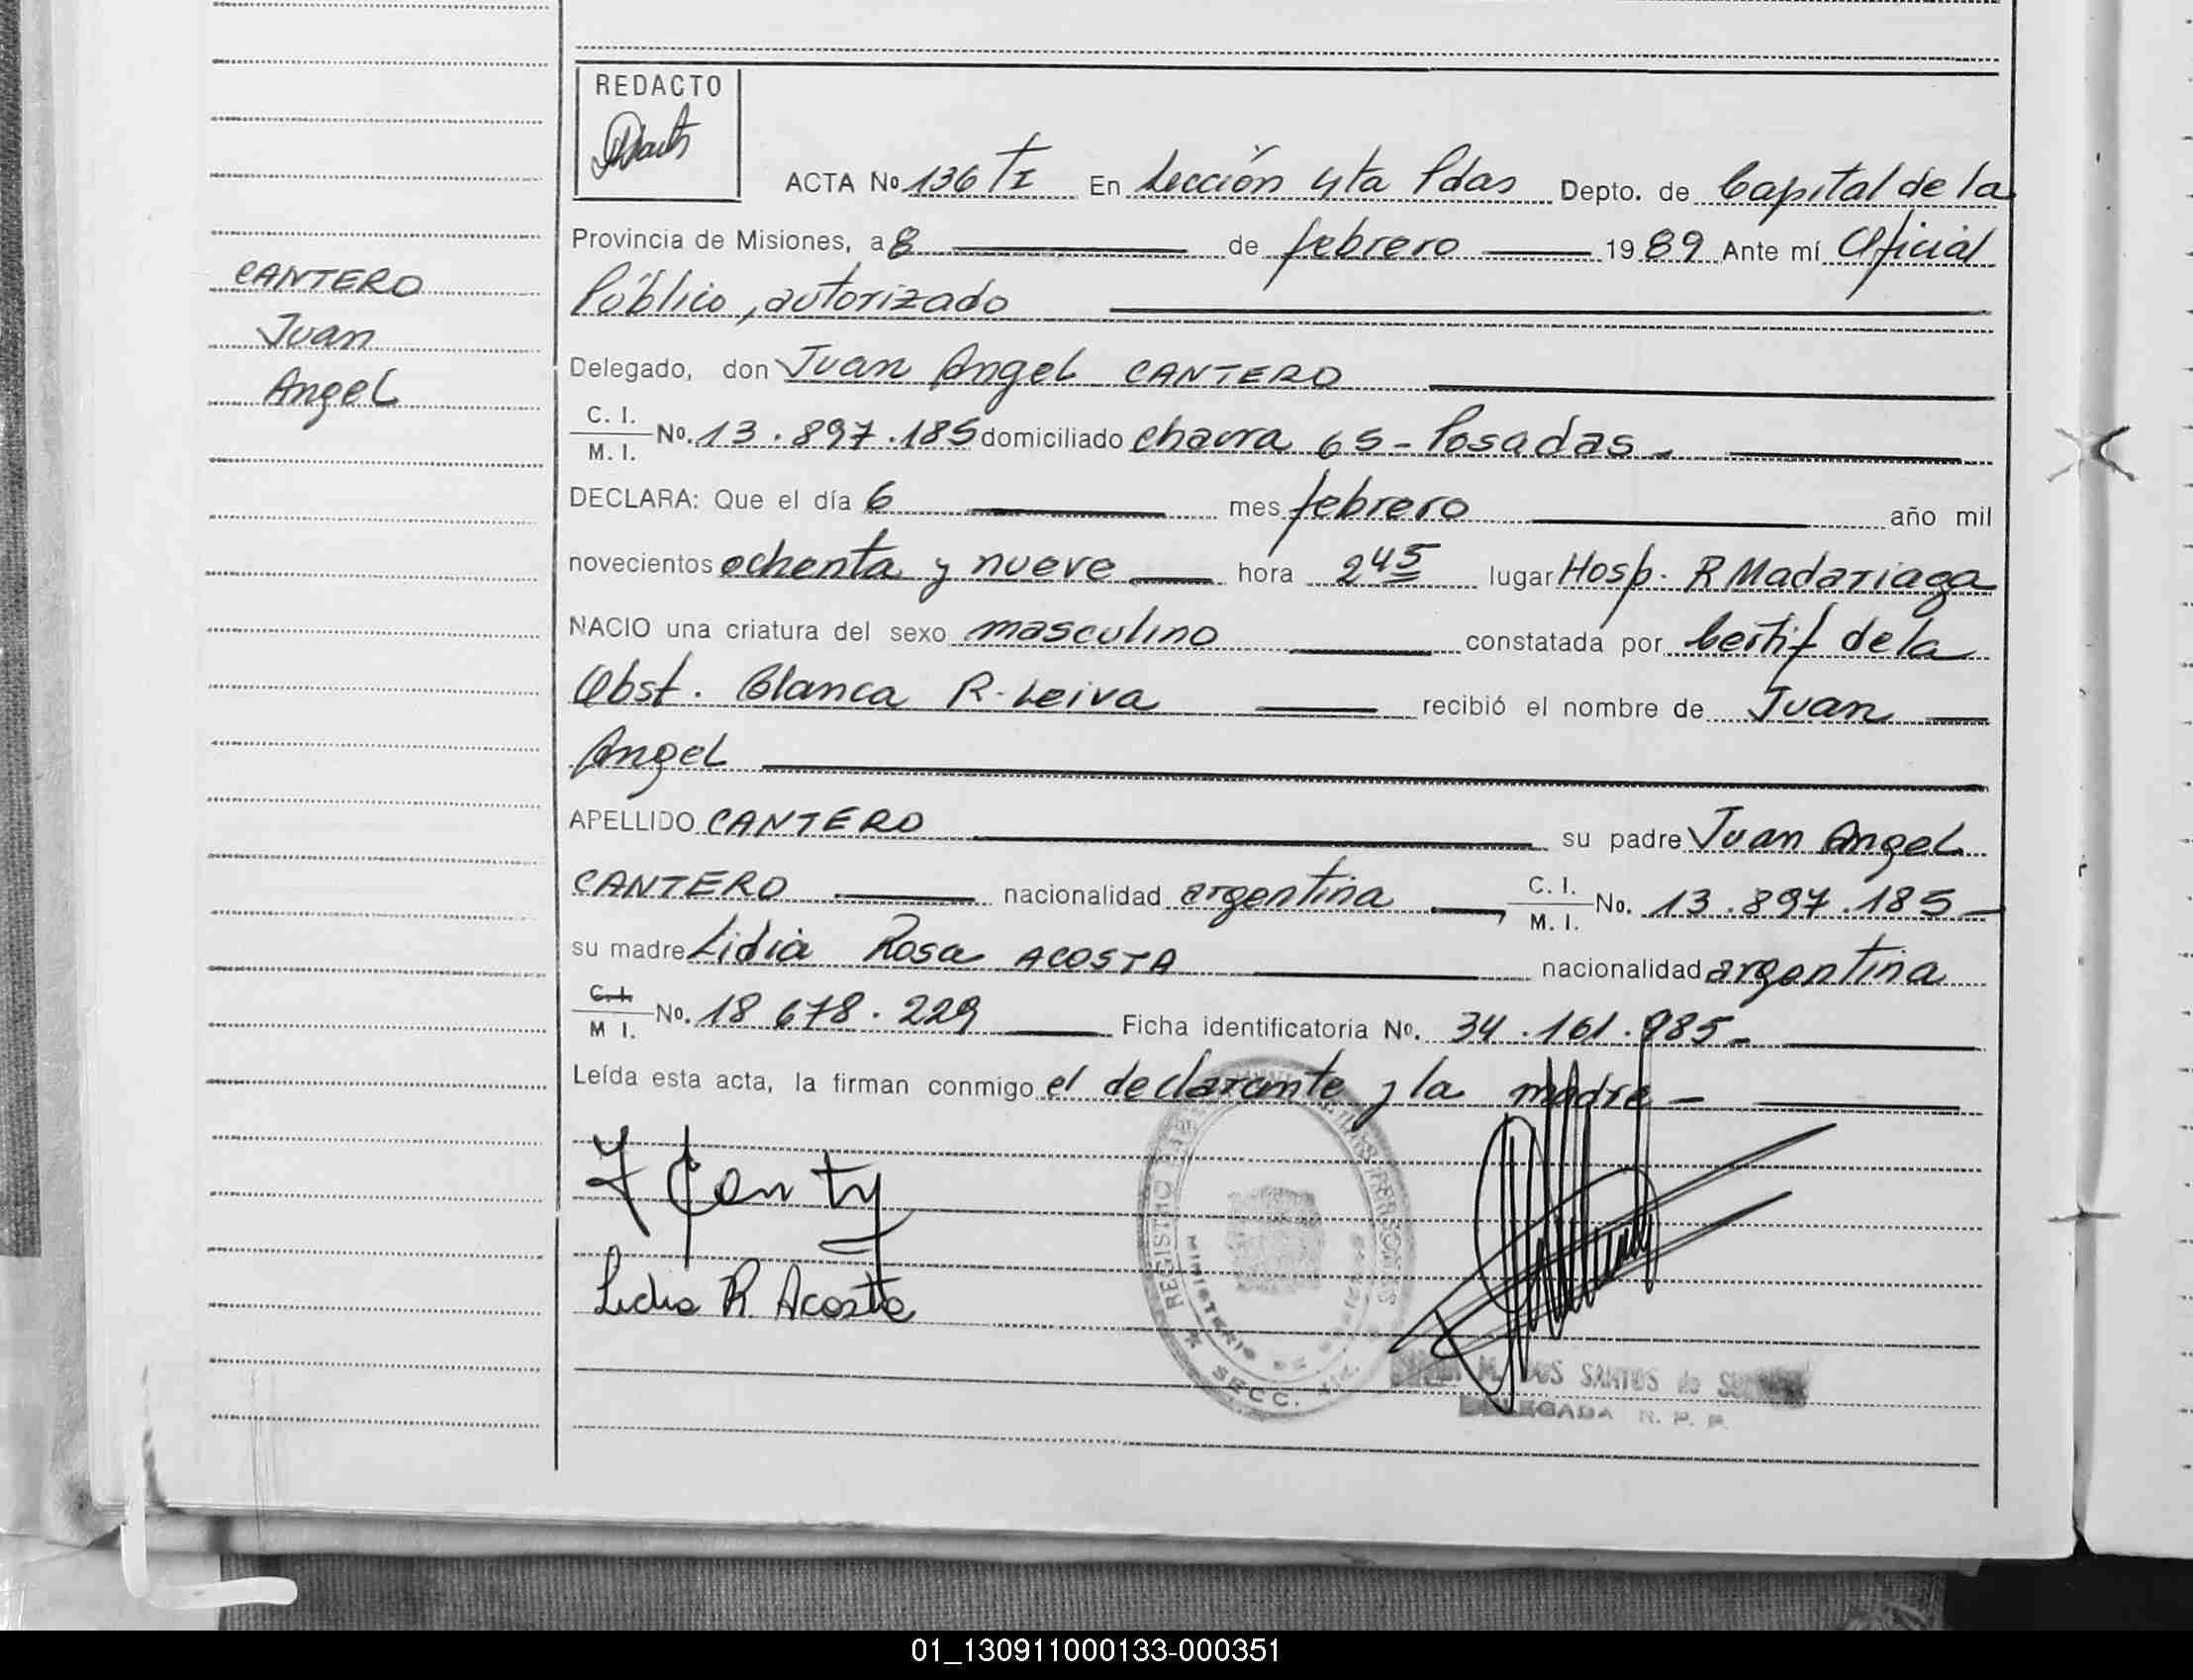 REDACTO
ACTA No 136 TI En Sección 4ta Pdas Depto. de Capital de la
Provincia de Misiones, a 8 de febrero 1989 Ante mí Oficial
Público, autorizado
CANTERO
Juan
Angel
Delegado, don Juan Angel CANTERO
C. I.
M. I. No. 13.897.185 domiciliado chacra 65 - Posadas -
DECLARA: Que el día 6 mes febrero año mil
novecientos ochenta y nueve hora 2 45 lugar Hosp. R Madariaga
NACIO una criatura del sexo masculino constatada por Certif de la
Obst. Blanca R. Leiva recibió el nombre de Juan
Angel
APELLIDO CANTERO su padre Juan Angel
CANTERO nacionalidad argentina C. I.
M. I. No. 13.897.185 -
su madre Lidia Rosa ACOSTA nacionalidad argentina
C. I.
M I. No. 18 678.229 Ficha identificatoria No. 34.161.985 -
Leída esta acta, la firman conmigo el declarante y la madre -
Lidia R Acosta
REGISTRO
PERSONAS
MINISTERIO DE
SECC.
M. DOS SANTOS de
DELEGADA R. P. P.
01_130911000133-000351